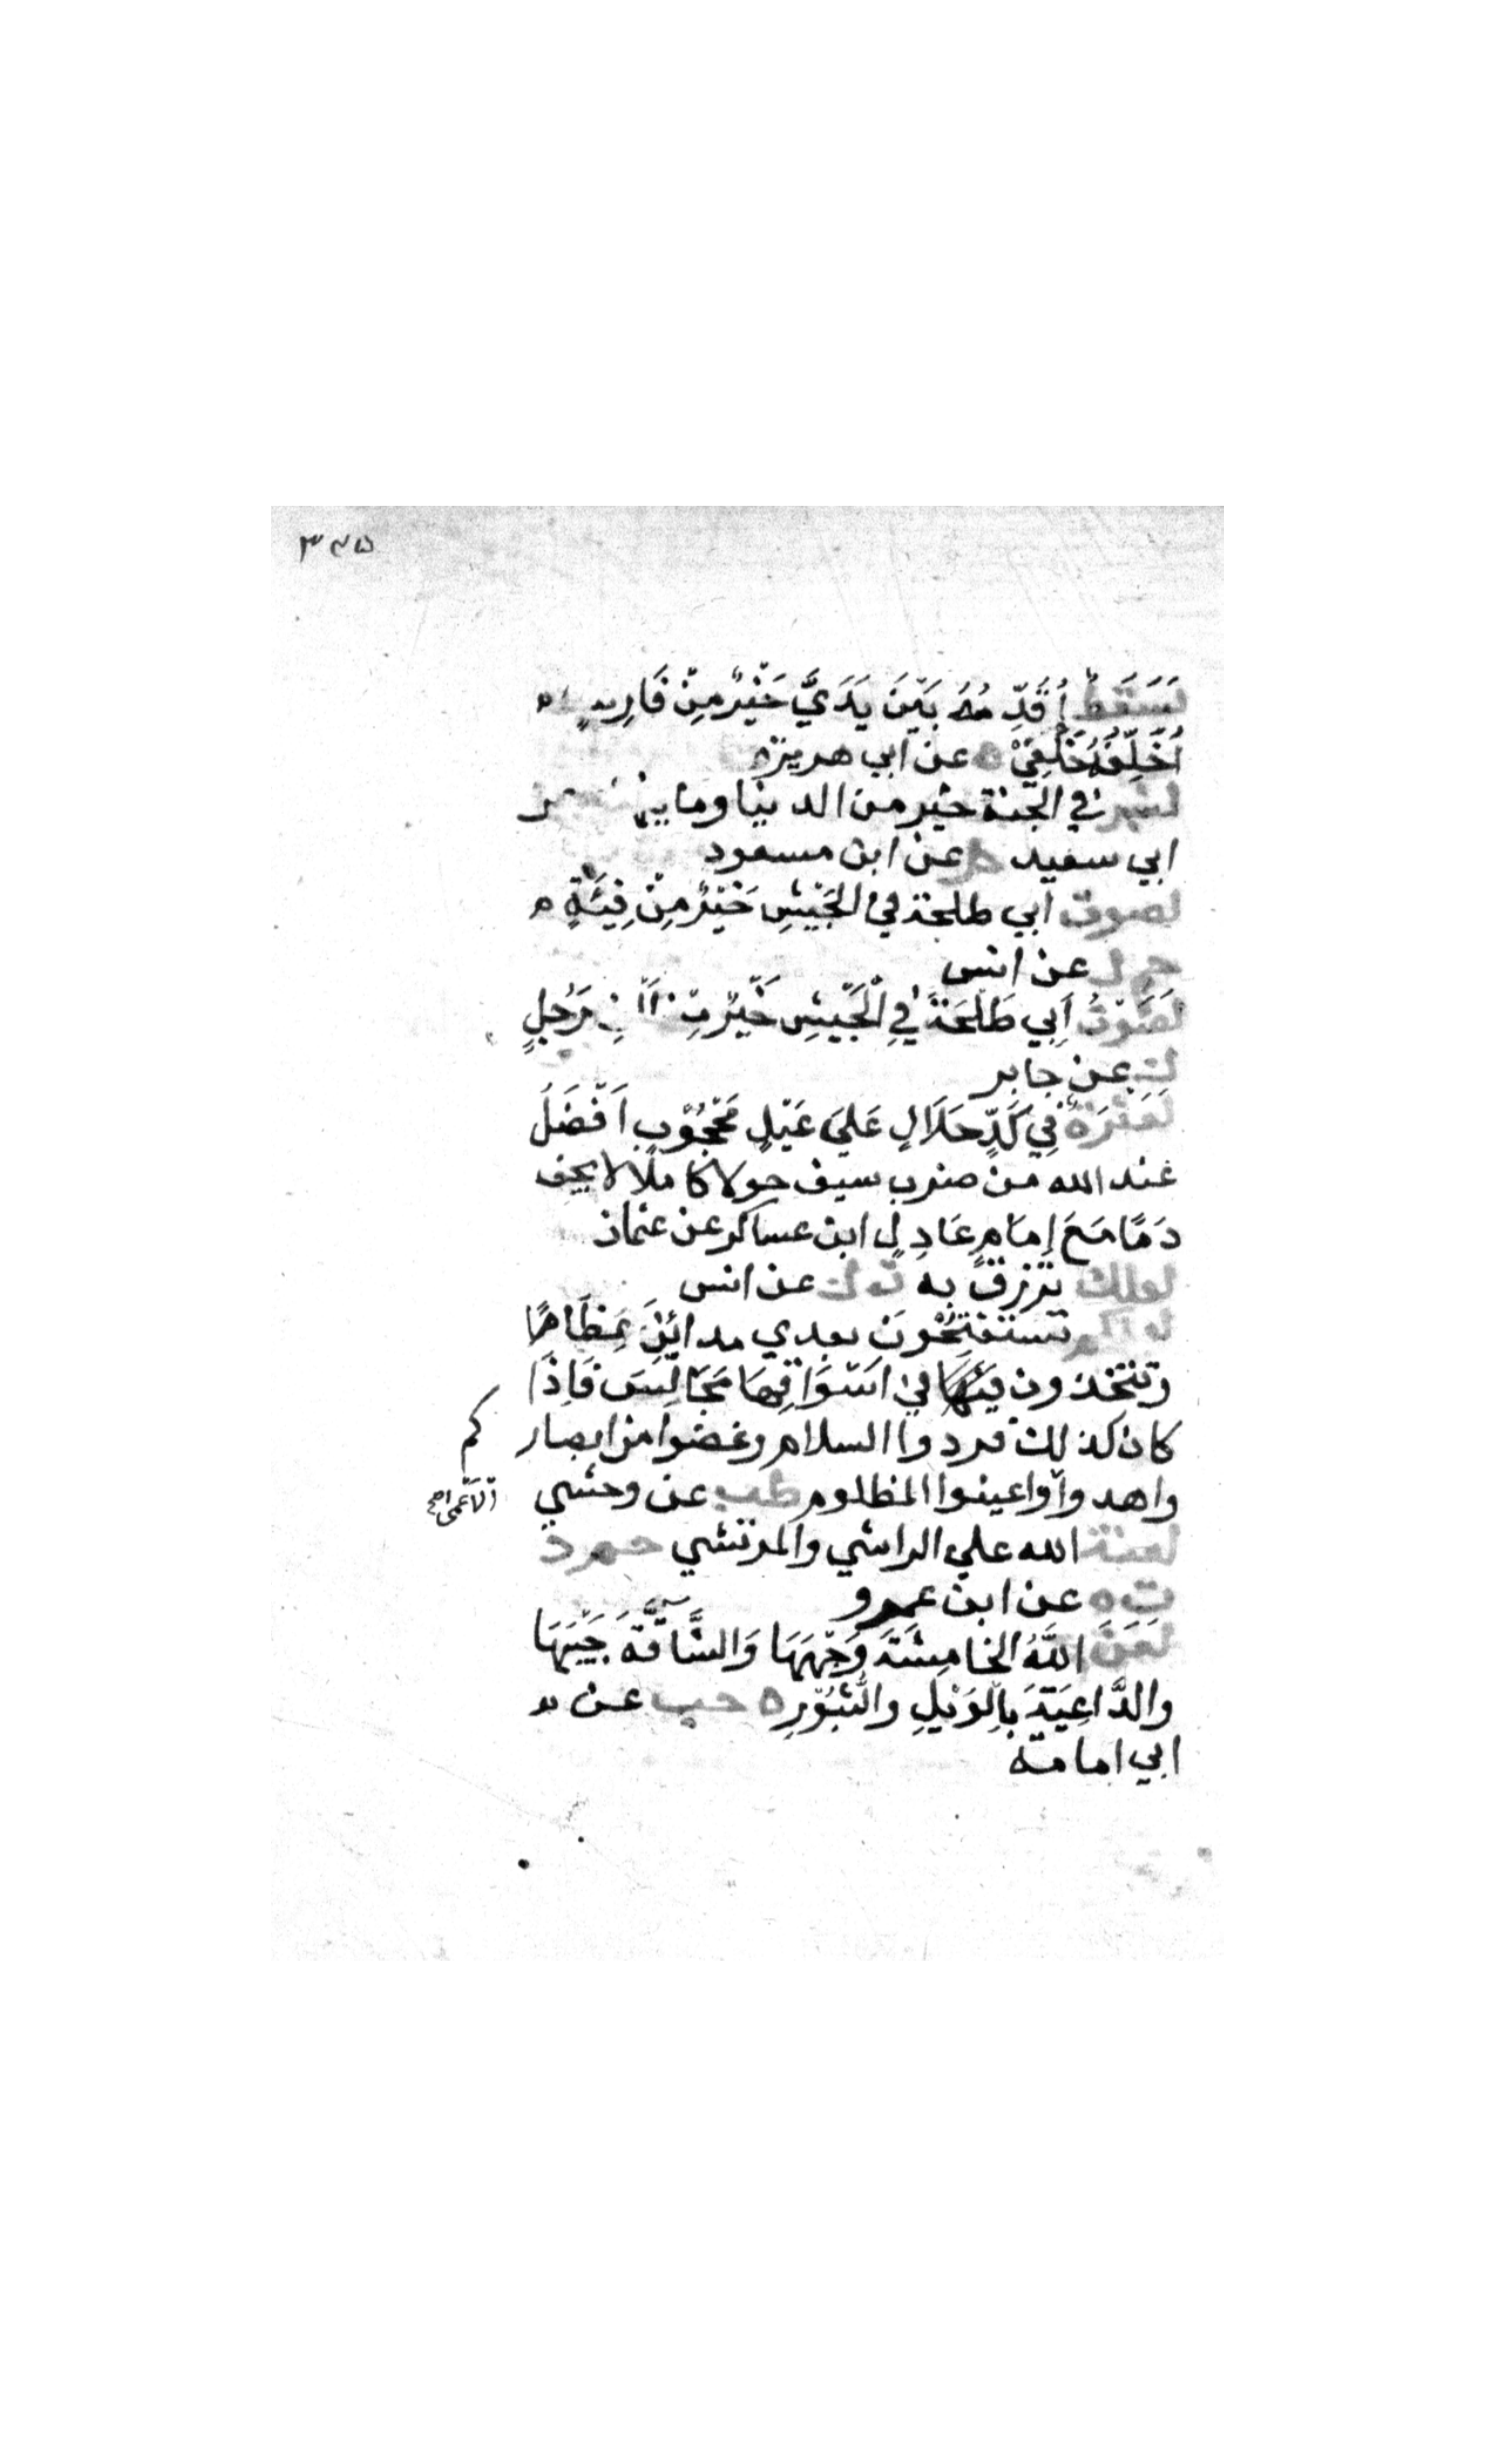 ٣٤٥
لَسَقَطٌ أُقَدِّمُهُ بَيْنَ يَدَيَّ خَيْرٌ مِنْ فَارِسٍ
أُخَلِّفُهُ خَلْفِيْ ه عن ابي هريرة
لشبر في الجنة خير من الدنيا وما فيها
ابي سعيد حل عن ابن مسعود
لصوت ابي طلحة في الجَيْشِ خَيْرٌ مِنْ فِئَةٍ
حم ك عن انس
لَصَوْتُ أَبِي طَلْحَةَ فِي الْجَيْشِ خَيْرٌ مِنْ رَجُلٍ
ك عن جابر
لَعَثْرَةٌ فِي كَدِّ حَلَالٍ عَلَى عَيِّلٍ مَحْجُوْبٍ اَفْضَلُ
عند الله من ضرب سيف حولا كاملا لا يجف
دَمًا مَعَ إِمَامٍ عَادِلٍ ابن عساكر عن عثمان
لعلك ترزق به ت ك عن انس
لعلكم تستفتِحُوْنَ بعدي مدائِنَ عِظَامًا
وتتخذون فِيْهَا في اَسْوَاقِهَا مَجَالِسَ فَاِذَا
كان كذلك فردوا السلام وغضوا من ابصاركم
واهدوا واعينوا المظلوم طب عن وحشي
الاَعْمَى
لعنة الله علي الراشي والمرتشي حم د
ت ه عن ابن عمرو
لَعَنَ اللَّهُ الخَامِشَةَ وَجْهَهَا وَالشَّاقَّةَ جَيْبَهَا
والدَّاعِيَةَ بِالوَيْلِ والثُّبُوْرِ ه حب عن
ابي امامة